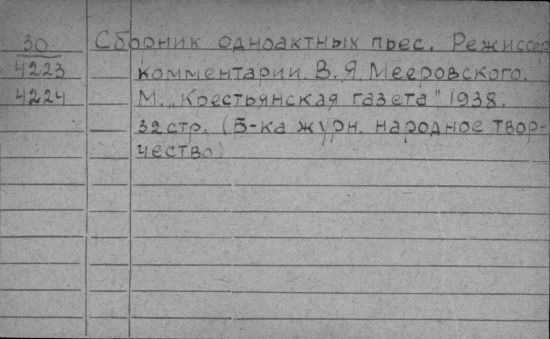 30 Сборник одноактных пьес. Режиссер
4223 комментарии. В. Я. Мееровского.
4224 М. „Крестьянская газета" 1938.
32 стр. (Б-ка журн. народное твор-
чество)